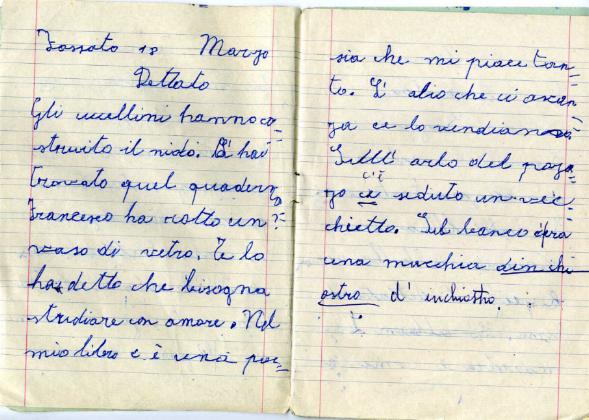 Fossato 18 Marzo
Dettato
Gli uccellini hanno co=
struito il nido. Là hai
trovato quel quaderno
Francesco ha rotto un?
vaso di vetro. Te lo
ha detto che bisogna
studiare con amore. Nel
mio libro c è una poe=
sia che mi piace tan=
to. L' olio che ci avan=
za ce lo vendiamo
Sull' orlo del poz=
zo c'è seduto un vec=
chietto. Sul banco c'era
una macchia din chi
ostro d' inchiostro.